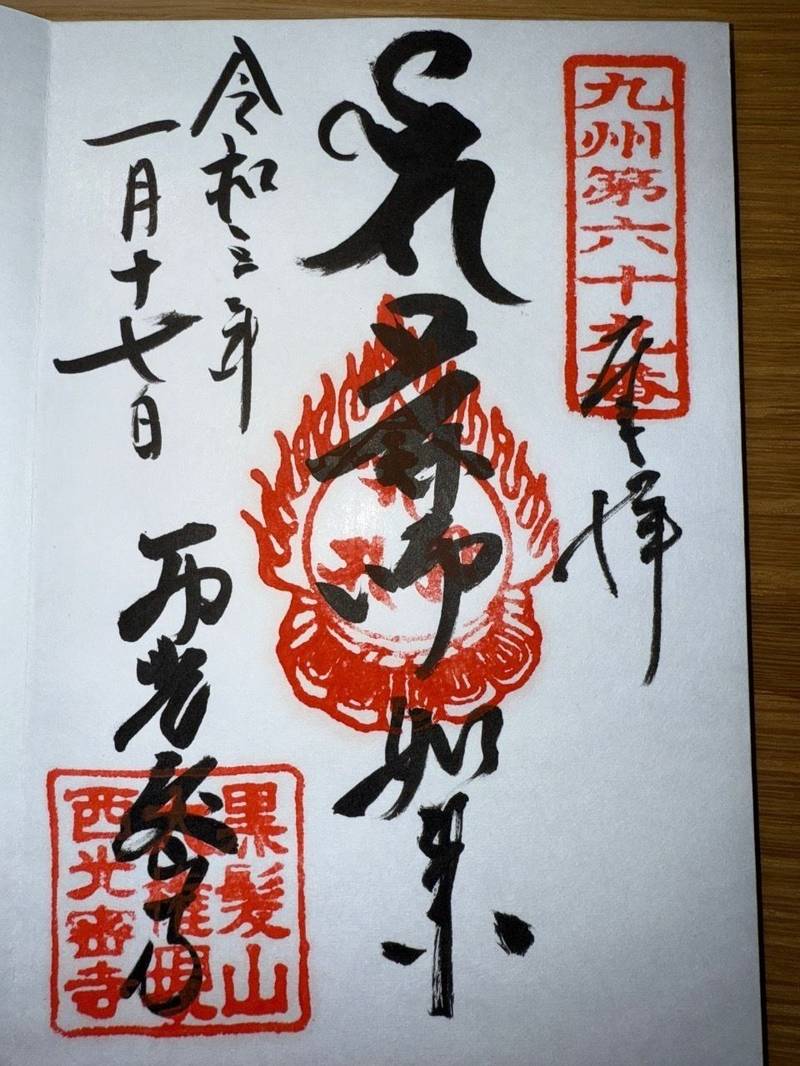 九州第六十九番
奉拝
薬師如来
令和三年
一月十七日
西光密寺
黒髪山
大権現
西光密寺